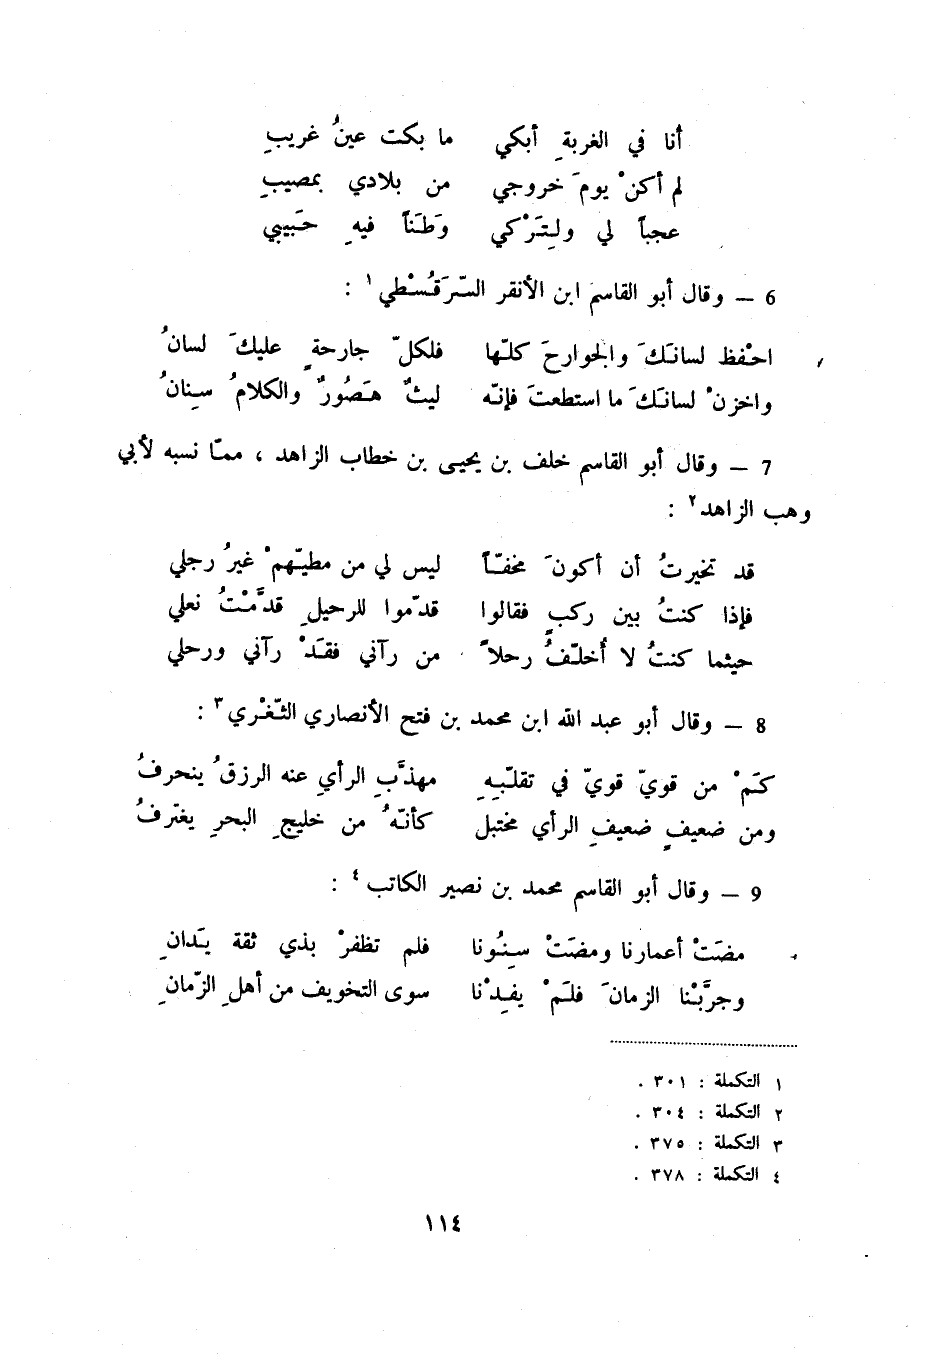 أنا في الغربةِ أبكي ما بكت عينُ غريبِ
لم أكنْ يومَ خروجي من بلادي بمصيبِ
عجباً لي ولِتَرْكي وَطَناً فيهِ حَبيبي
6 – وقال أبو القاسم ابن الأنقر السّرَقُسْطي١ :
احْفظ لسانَكَ والجوارحَ كلّها فلكلّ جارحةٍ عليكَ لسانُ
واخزنْ لسانَكَ ما استطعتَ فإنّه ليثٌ هَصُورٌ والكلامُ سِنانُ
7 – وقال أبو القاسم خلف بن يحيى بن خطاب الزاهد ، ممّا نسبه لأبي
وهب الزاهد٢ :
قد تخيرتُ أن أكونَ مخفّاً ليس لي من مطيّهمْ غيرُ رجلي
فإذا كنتُ بين ركبٍ فقالوا قدّموا للرحيلِ قدَّمْتُ نعلي
حيثما كنتُ لا أُخلّفُ رحلاً من رآني فقَدْ رآني ورحلي
8 – وقال أبو عبد الله ابن محمد بن فتح الأنصاري الثّغْري٣ :
كَمْ من قويّ قويّ في تقلّبِهِ مهذَّبِ الرأيِ عنه الرزقُ ينحرفُ
ومن ضعيفٍ ضعيفِ الرأي مختبل كأنّهُ من خليجِ البحرِ يغترفُ
9 – وقال أبو القاسم محمد بن نصير الكاتب٤ :
مضَتْ أعمارنا ومضَتْ سِنُونا فلم تظفرْ بذي ثقة يَدانِ
وجرَّبْنا الزمانَ فلَمْ يفِدْنا سوى التخويف من أهلِ الزّمانِ
١ التكملة : ٣٠١ .
٢ التكملة : ٣٠٤ .
٣ التكملة : ٣٧٥ .
٤ التكملة : ٣٧٨ .
١١٤